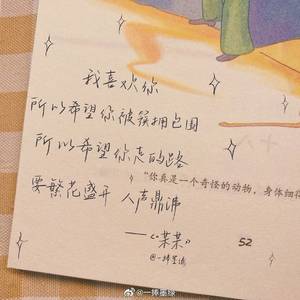 我喜欢你
所以希望你被簇拥包围
所以希望你走的路
“你真是一个奇怪的动物，身体细得
要繁花盛开 人声鼎沸
——《某某》
52
@一捧墨绿
@一捧墨绿